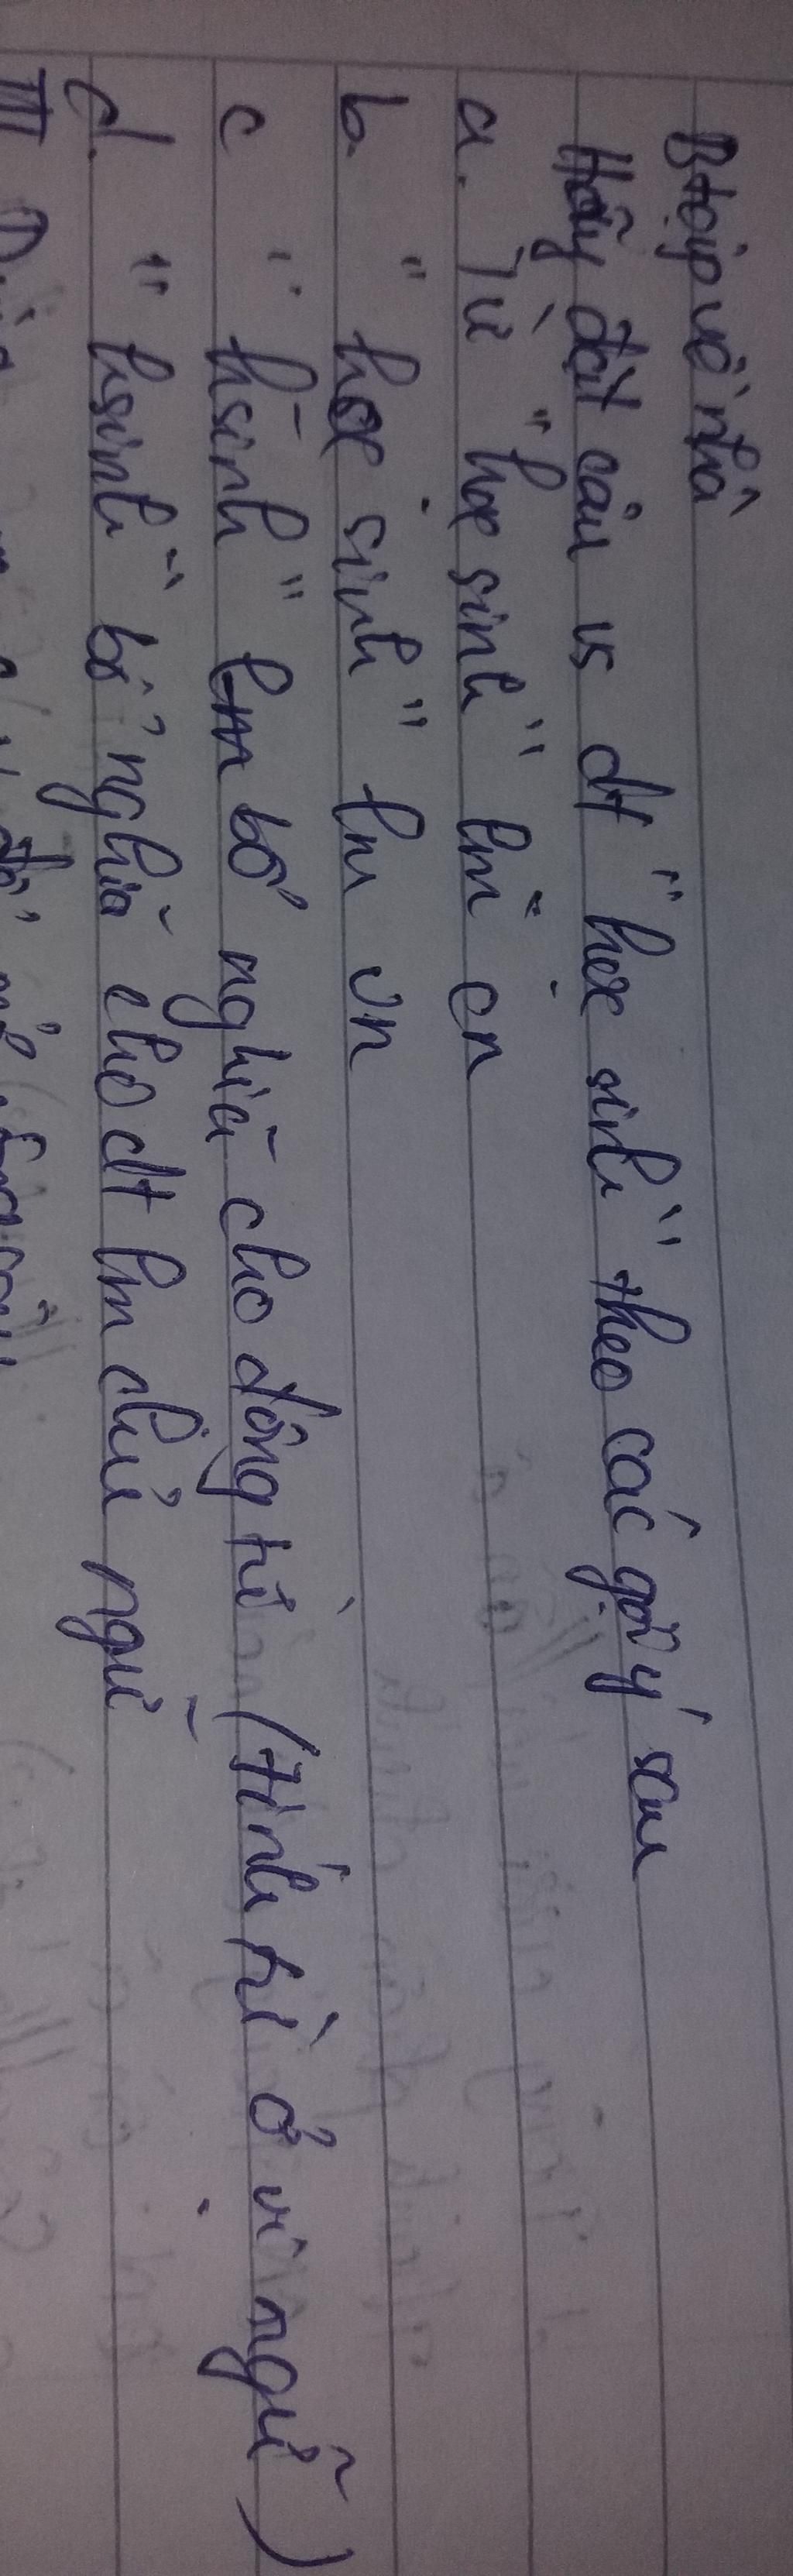 Btập về nhà
Hãy đặt câu vs dt "học sinh" theo các gợi ý sau
a. Từ "học sinh" lm cn
b. " học sinh" lm vn
c " hsinh" lm bổ nghĩa cho động từ (tính từ ở vị ngữ)
d. " hsinh" bổ nghĩa cho dt lm chủ ngữ
III